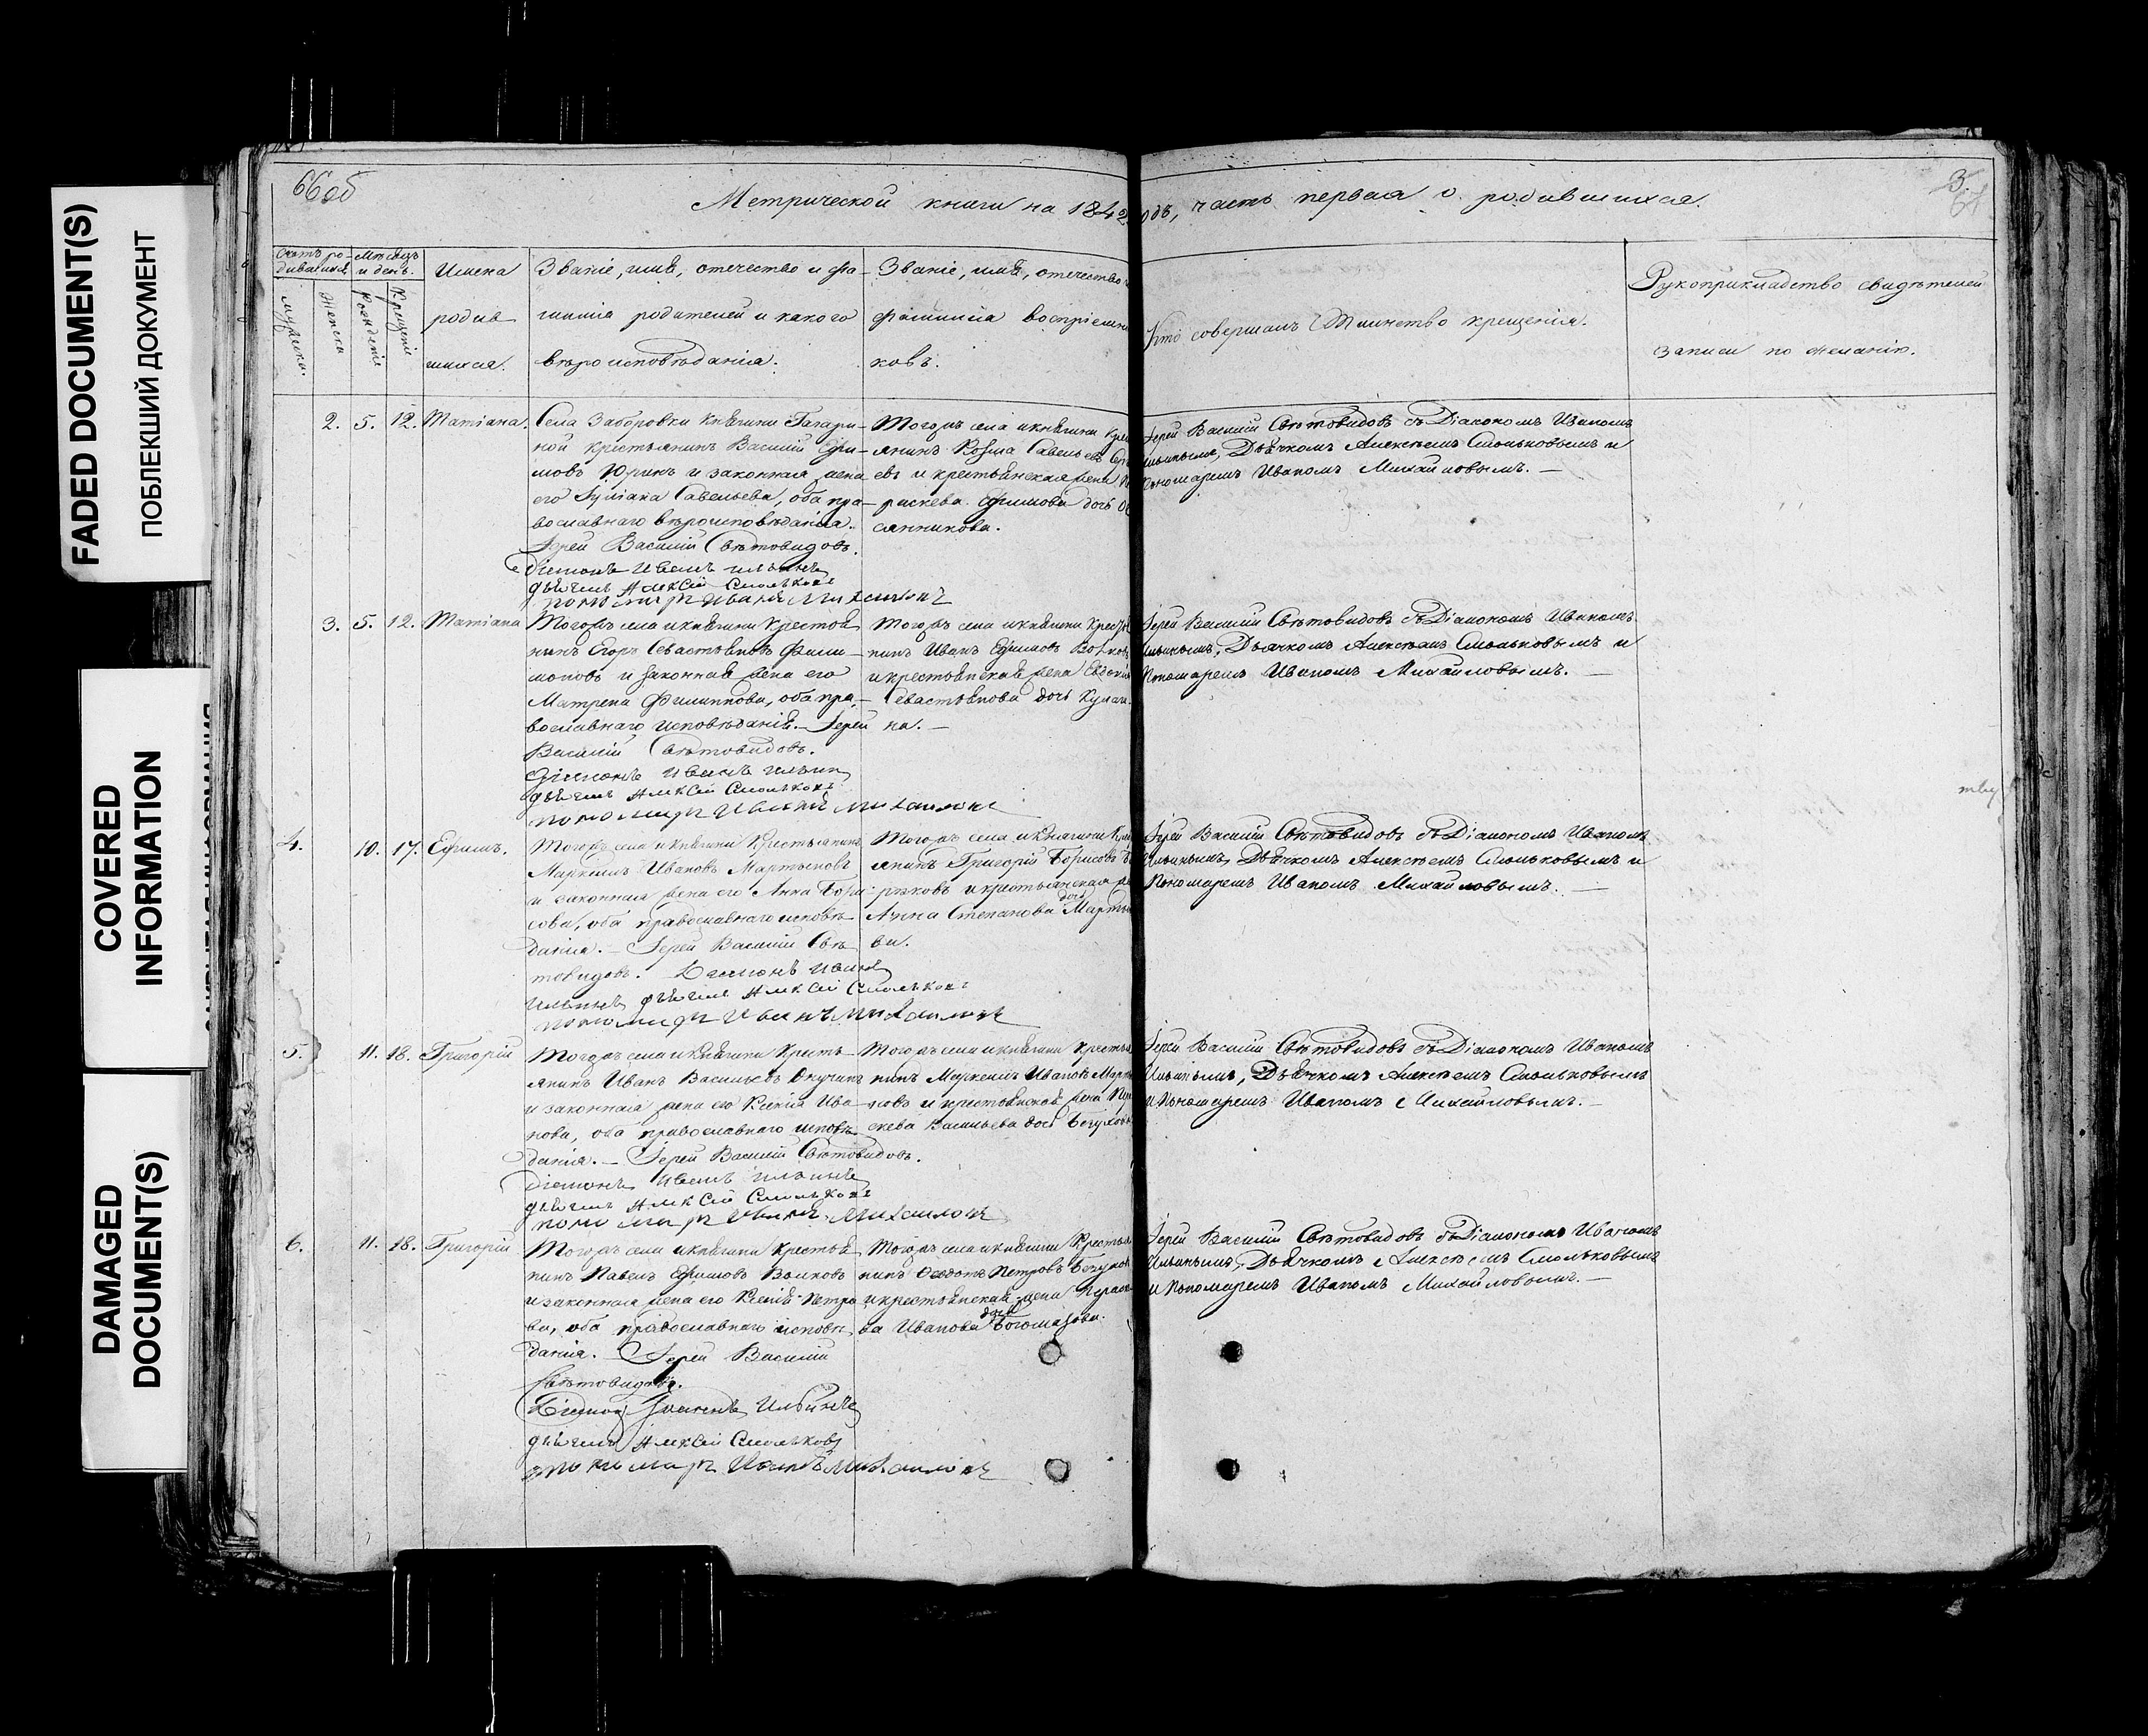 FADED DOCUMENT(S)
ПОБЛЕКШИЙ ДОКУМЕНТ
COVERED
INFORMATION
DAMAGED
DOCUMENT(S)
66об
3.
Метрической книги на 1842 одъ, часть первая о родившихся.
Счетъ ро-
дившихся
Мѣсяцъ
и день.
мужска.
Женска
Рожденiе
Крещенiе
Имена
родив
шихся.
Званiе, имя, отечество и фа-
милiя родителей и какого
вѣроисповѣданiя.
Званiе, имя, отечество
фамилiя воспрiемни
ковъ.
Кто совершалъ Таинство крещенiя.
Рукоприкладство свидѣтелей
записи по желанiю.
2. 5. 12. Татiана.
Села Заборовки Княгини Гагари-
ной крестьянинъ Василiй Ефи-
мовъ Юринъ и законная жена
его Iулiана Савельева, оба пра-
вославнаго вѣроисповѣданiя.
Iерей Василiй Свѣтовидовъ.
Дiаконъ Иванъ Ильинъ
дьячекъ Алексѣй Смольковъ
пономарь Иванъ Михаиловъ
Тогожъ села и княгини крес
янинъ Козма Савельевъ
евъ и крестьянская жена
раскева Ефимова дочь
сянникова.
Iерей Василiй Свѣтовидовъ съ Дiакономъ Иваномъ
Ильинымъ, Дьячкомъ Алексѣемъ Смольковымъ и
Пономаремъ Иваномъ Михайловымъ. —
3. 5. 12. Татiана
Тогожъ села и княгини крестья
нинъ Егоръ Севастьяновъ Фили-
моновъ и законная жена его
Матрена Филиппова, оба пра-
вославнаго исповѣданiя. — Iерей
Василiй Свѣтовидовъ.
Дiаконъ Иванъ Ильинъ
дьячекъ Алексѣй Смольковъ
пономарь Иванъ Михаиловъ
Тогожъ села и княгини крестья
нинъ Иванъ Ефимовъ Волковъ
и крестьянская жена Евдокiя
Севастьянова дочь Кулаги
на. —
Iерей Василiй Свѣтовидовъ съ Дiакономъ Иваномъ
Ильинымъ, Дьячкомъ Алексѣемъ Смольковымъ и
Пономаремъ Иваномъ Михайловымъ. —
4. 10. 17. Ефимъ.
Тогожъ села и княгини Крестьянинъ
Маркелъ Ивановъ Мартыновъ
и законная жена его Анна Бори-
сова, оба православнаго исповѣ
данiя. — Iерей Василiй Свѣ
товидовъ. Дiаконъ Иванъ
Ильинъ дьячекъ Алексѣй Смольковъ
пономарь Иванъ Михаиловъ
Тогожъ села и Княгини Крес
янинъ Григорiй Борисовъ
ряковъ и крестьянская же
Анна Степанова дочь Марты
ва.
Iерей Василiй Свѣтовидовъ съ Дiакономъ Иваномъ
Ильинымъ, Дьячкомъ Алексѣемъ Смольковымъ и
Пономаремъ Иваномъ Михайловымъ. —
5. 11. 18. Григорiй
Тогожъ села и княгини Кресть-
янинъ Иванъ Васильевъ Окунинъ
и законная жена его Ксенiя Ива-
нова, оба православнаго исповѣ
данiя. — Iерей Василiй Свѣтовидовъ.
Дiаконъ Иванъ Ильинъ
дьячекъ Алексѣй Смольковъ
пономарь Иванъ Михаиловъ
Тогожъ села и княгини крестья
нинъ Маркелъ Ивановъ Марты
новъ и крестьянская жена
скева Васильева дочь Бегунова
Iерей Василiй Свѣтовидовъ съ Дiакономъ Иваномъ
Ильинымъ, Дьячкомъ Алексѣемъ Смольковымъ
и Пономаремъ Иваномъ Михайловымъ. —
6. 11. 18. Григорiй
Тогожъ села и княгини крестья
нинъ Павелъ Ефимовъ Волковъ
и законная жена его Ксенiя Петро
ва, оба православнаго исповѣ
данiя. — Iерей Василiй
Свѣтовидовъ.
Дiаконъ Iоаннъ Ильинъ
дьячекъ Алексѣй Смольковъ
пономарь Иванъ Михаиловъ
Тогожъ села и княгини Крестья
нинъ Ѳедотъ Петровъ Бегунов
и крестьянская жена Параске
ва Иванова дочь Богомазова.
Iерей Василiй Свѣтовидовъ съ Дiакономъ Иваномъ
Ильинымъ, Дьячкомъ Алексѣемъ Смольковымъ
и Пономаремъ Иваномъ Михайловымъ. —